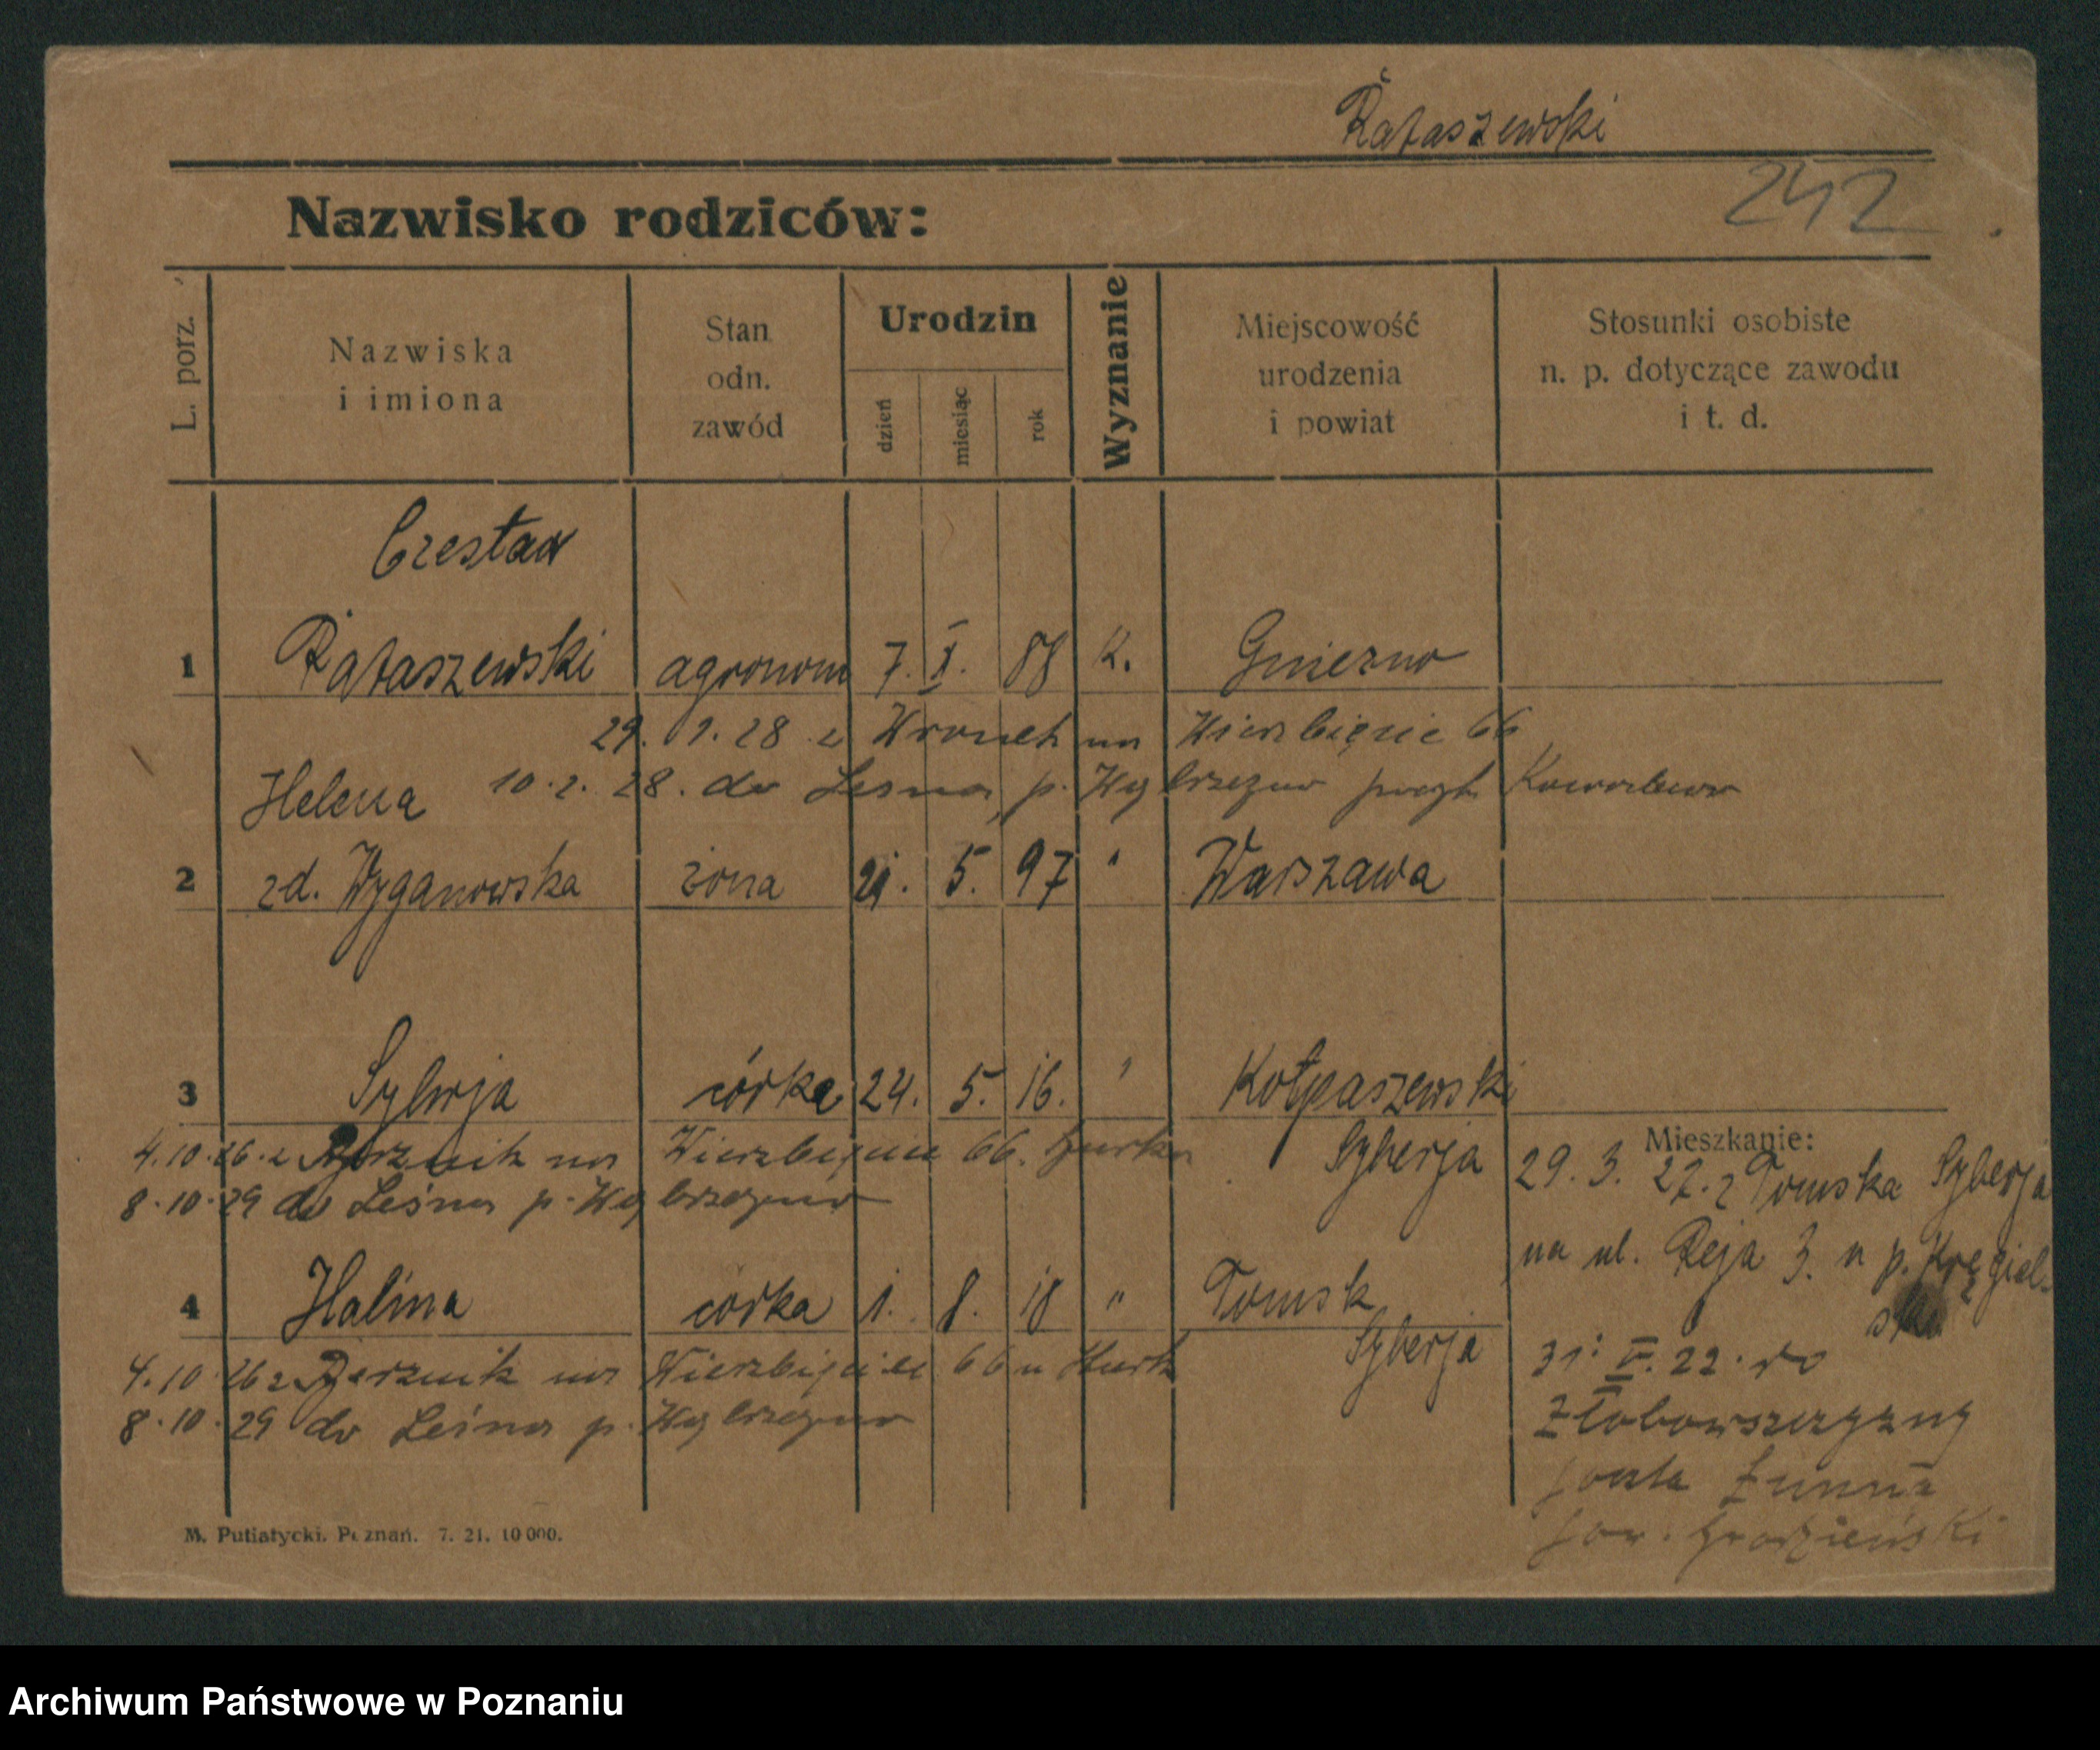 Rataszewski
242
Nazwisko rodziców:
L. porz.
Nazwiska
i imiona
Stan
odn.
zawód
Urodzin
dzień
miesiąc
rok
Wyznanie
Miejscowość
urodzenia
i powiat
Stosunki osobiste
n. p. dotyczące zawodu
i t. d.
Czesław
1 Rataszewski agronom 7. X. 88 K. Gniezno
29. 1. 28 z Wronek na Wierzbięcie 66
Helena 10. 2. 28. do Leśna, p. Wąbrzeźno Kowalewo
2 zd. Wyganowska żona 21. 5. 97 " Warszawa
3 Sylwja córka 24. 5. 16. " Kołpaszewski
Syberja
4.10.26 z na Wierzbięcie 66.
8.10.29 do Leśna p. Wąbrzeźno
Mieszkanie:
29. 3. 22. z Tomska Syberja
na ul. Reja 3. u p. Kręgiel-
ska
4 Halina córka 1. 8. 18 " Tomsk
Syberja
4.10.26 z na Wierzbięcie 66 u
8.10.29 do Leśna p. Wąbrzeźno
31. V. 22. do
Złobowszczyzny
poczta Łunna
pow. Grodzieński
M. Putiatycki. Poznań. 7. 21. 10 000.
Archiwum Państwowe w Poznaniu